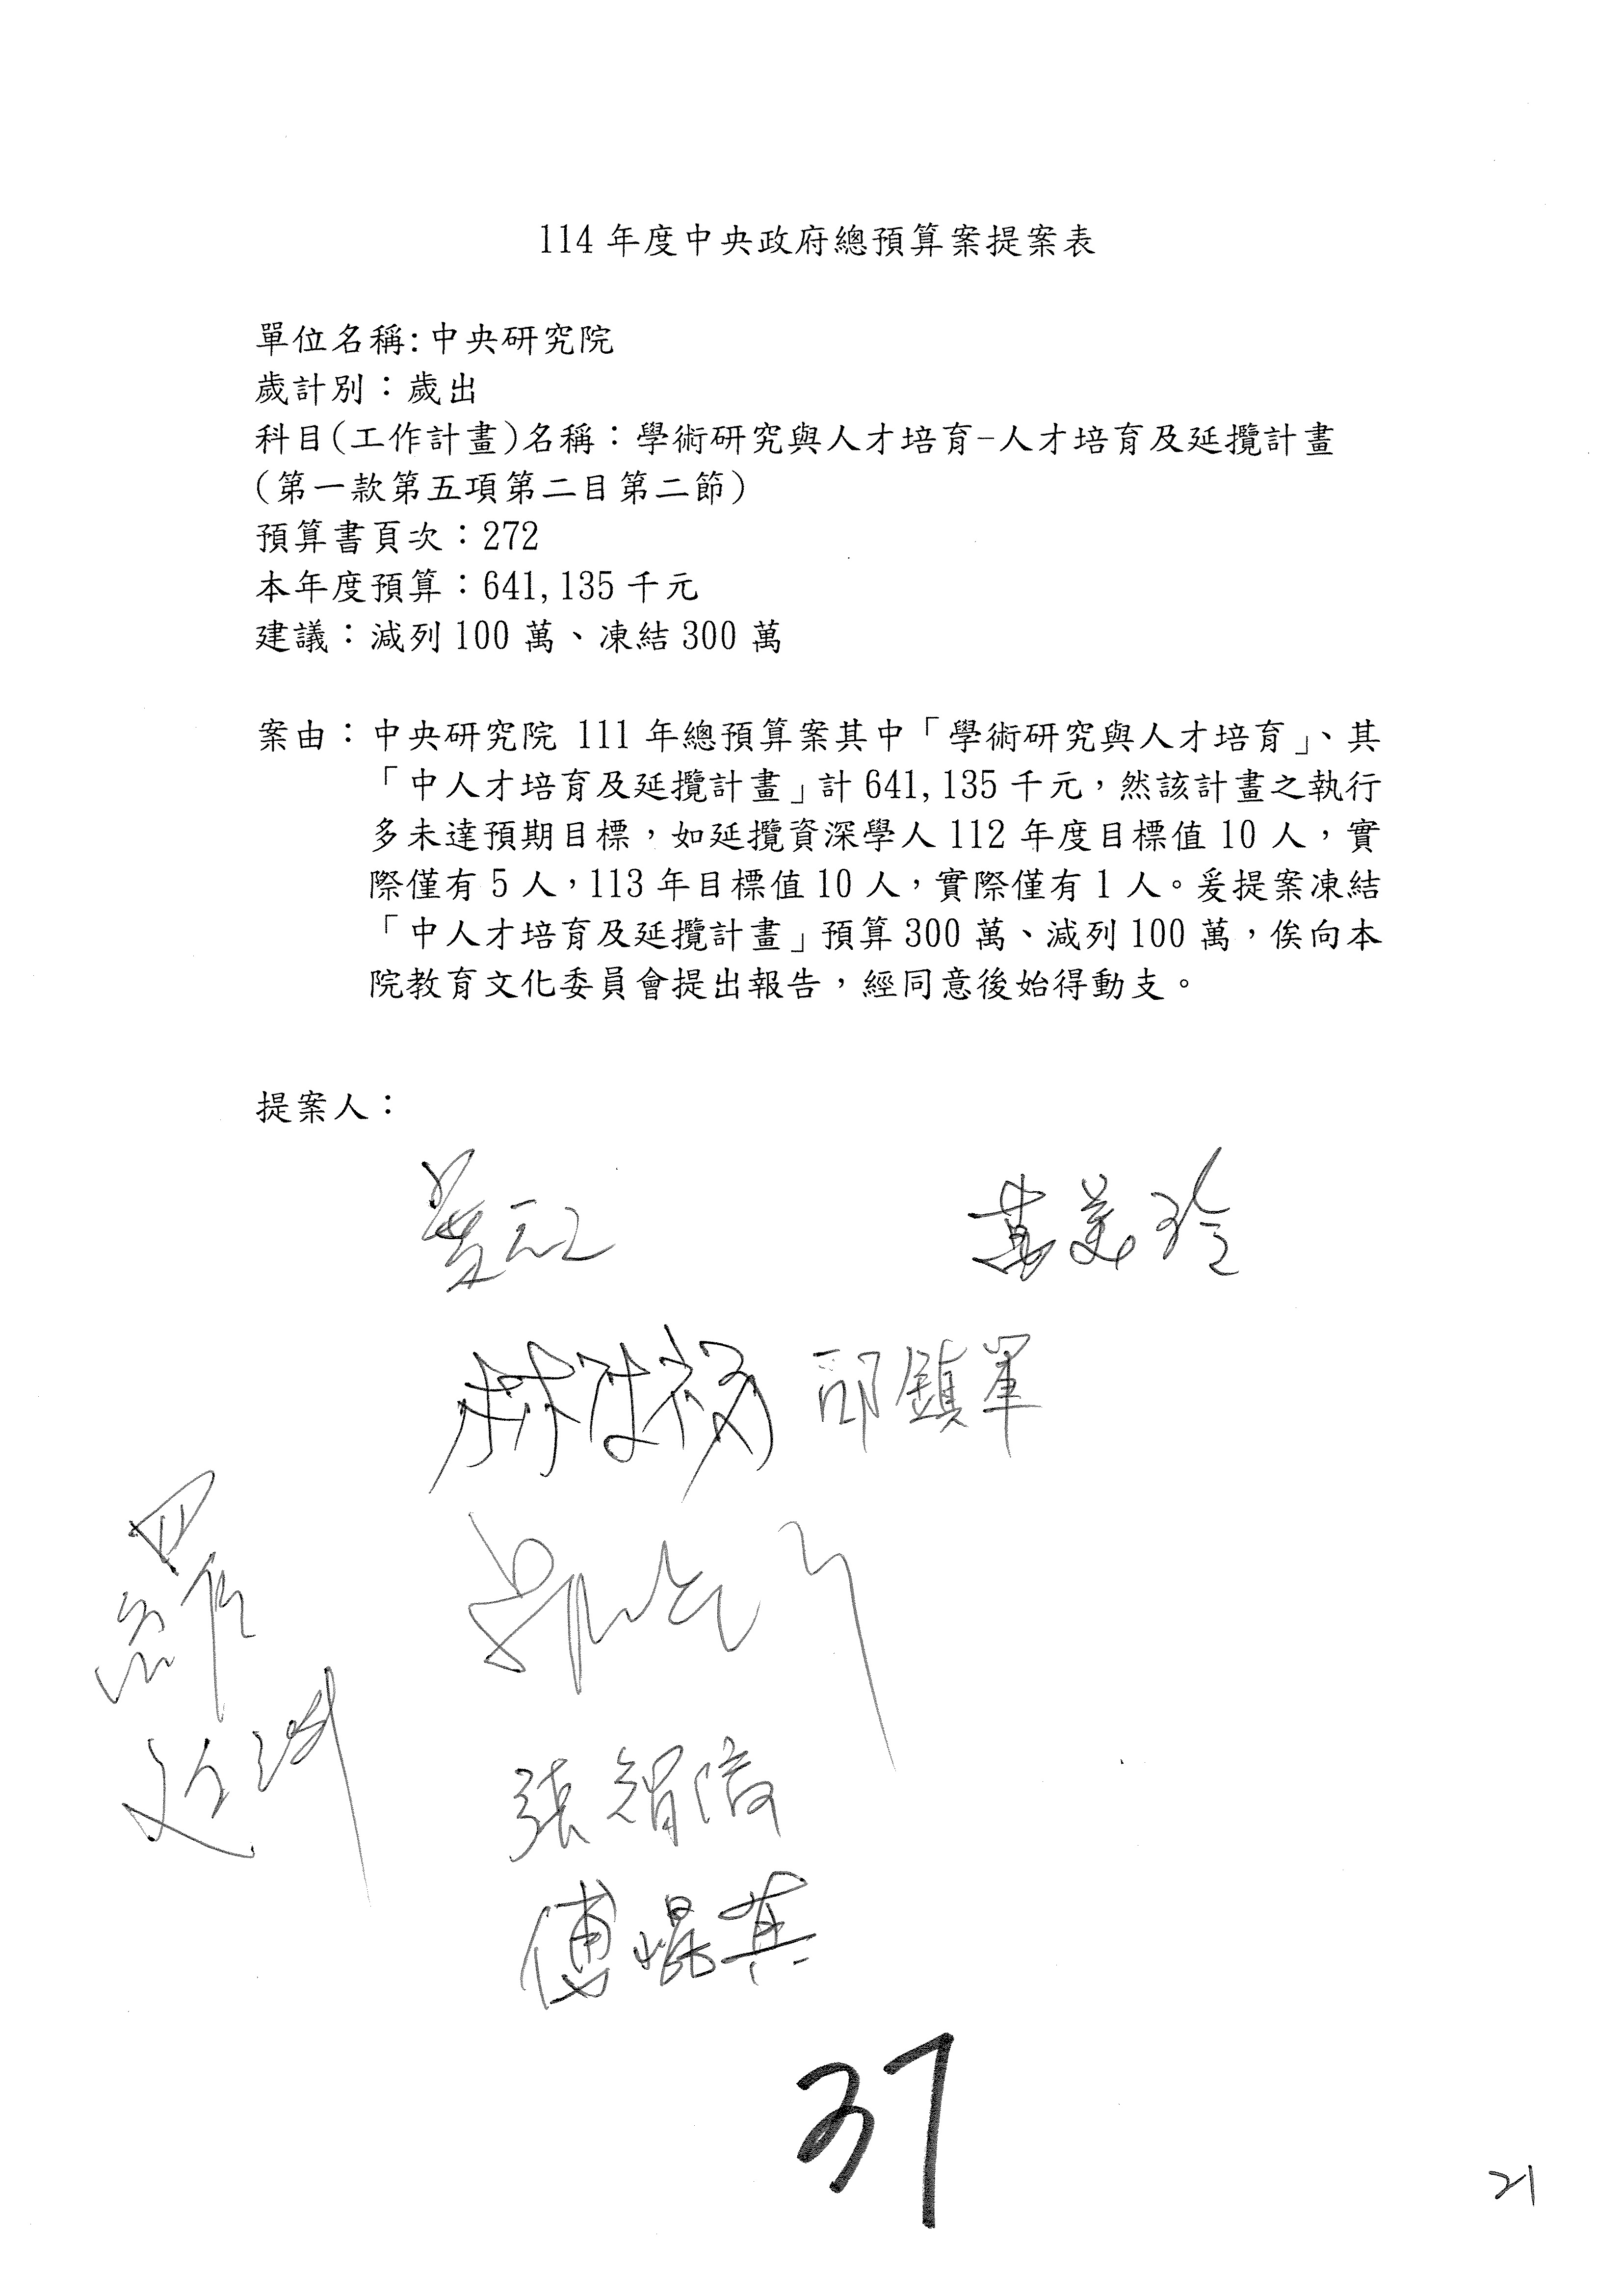 114年度中央政府總預算案提案表
單位名稱:中央研究院
歲計別：歲出
科目(工作計畫)名稱：學術研究與人才培育-人才培育及延攬計畫
(第一款第五項第二目第二節)
預算書頁次：272
本年度預算：641,135千元
建議：減列100萬、凍結300萬
案由：中央研究院 111年總預算案其中「學術研究與人才培育」、其
「中人才培育及延攬計畫」計641,135千元，然該計畫之執行
多未達預期目標，如延攬資深學人112年度目標值10人，實
際僅有5人，113年目標值10人，實際僅有1人。爰提案凍結
「中人才培育及延攬計畫」預算300萬、減列100萬，俟向本
院教育文化委員會提出報告，經同意後始得動支。
提案人：
葉元之 黃美玲
林沛祥 邱鎮軍
羅廷瑋
張智倫
傅崐萁
37
21